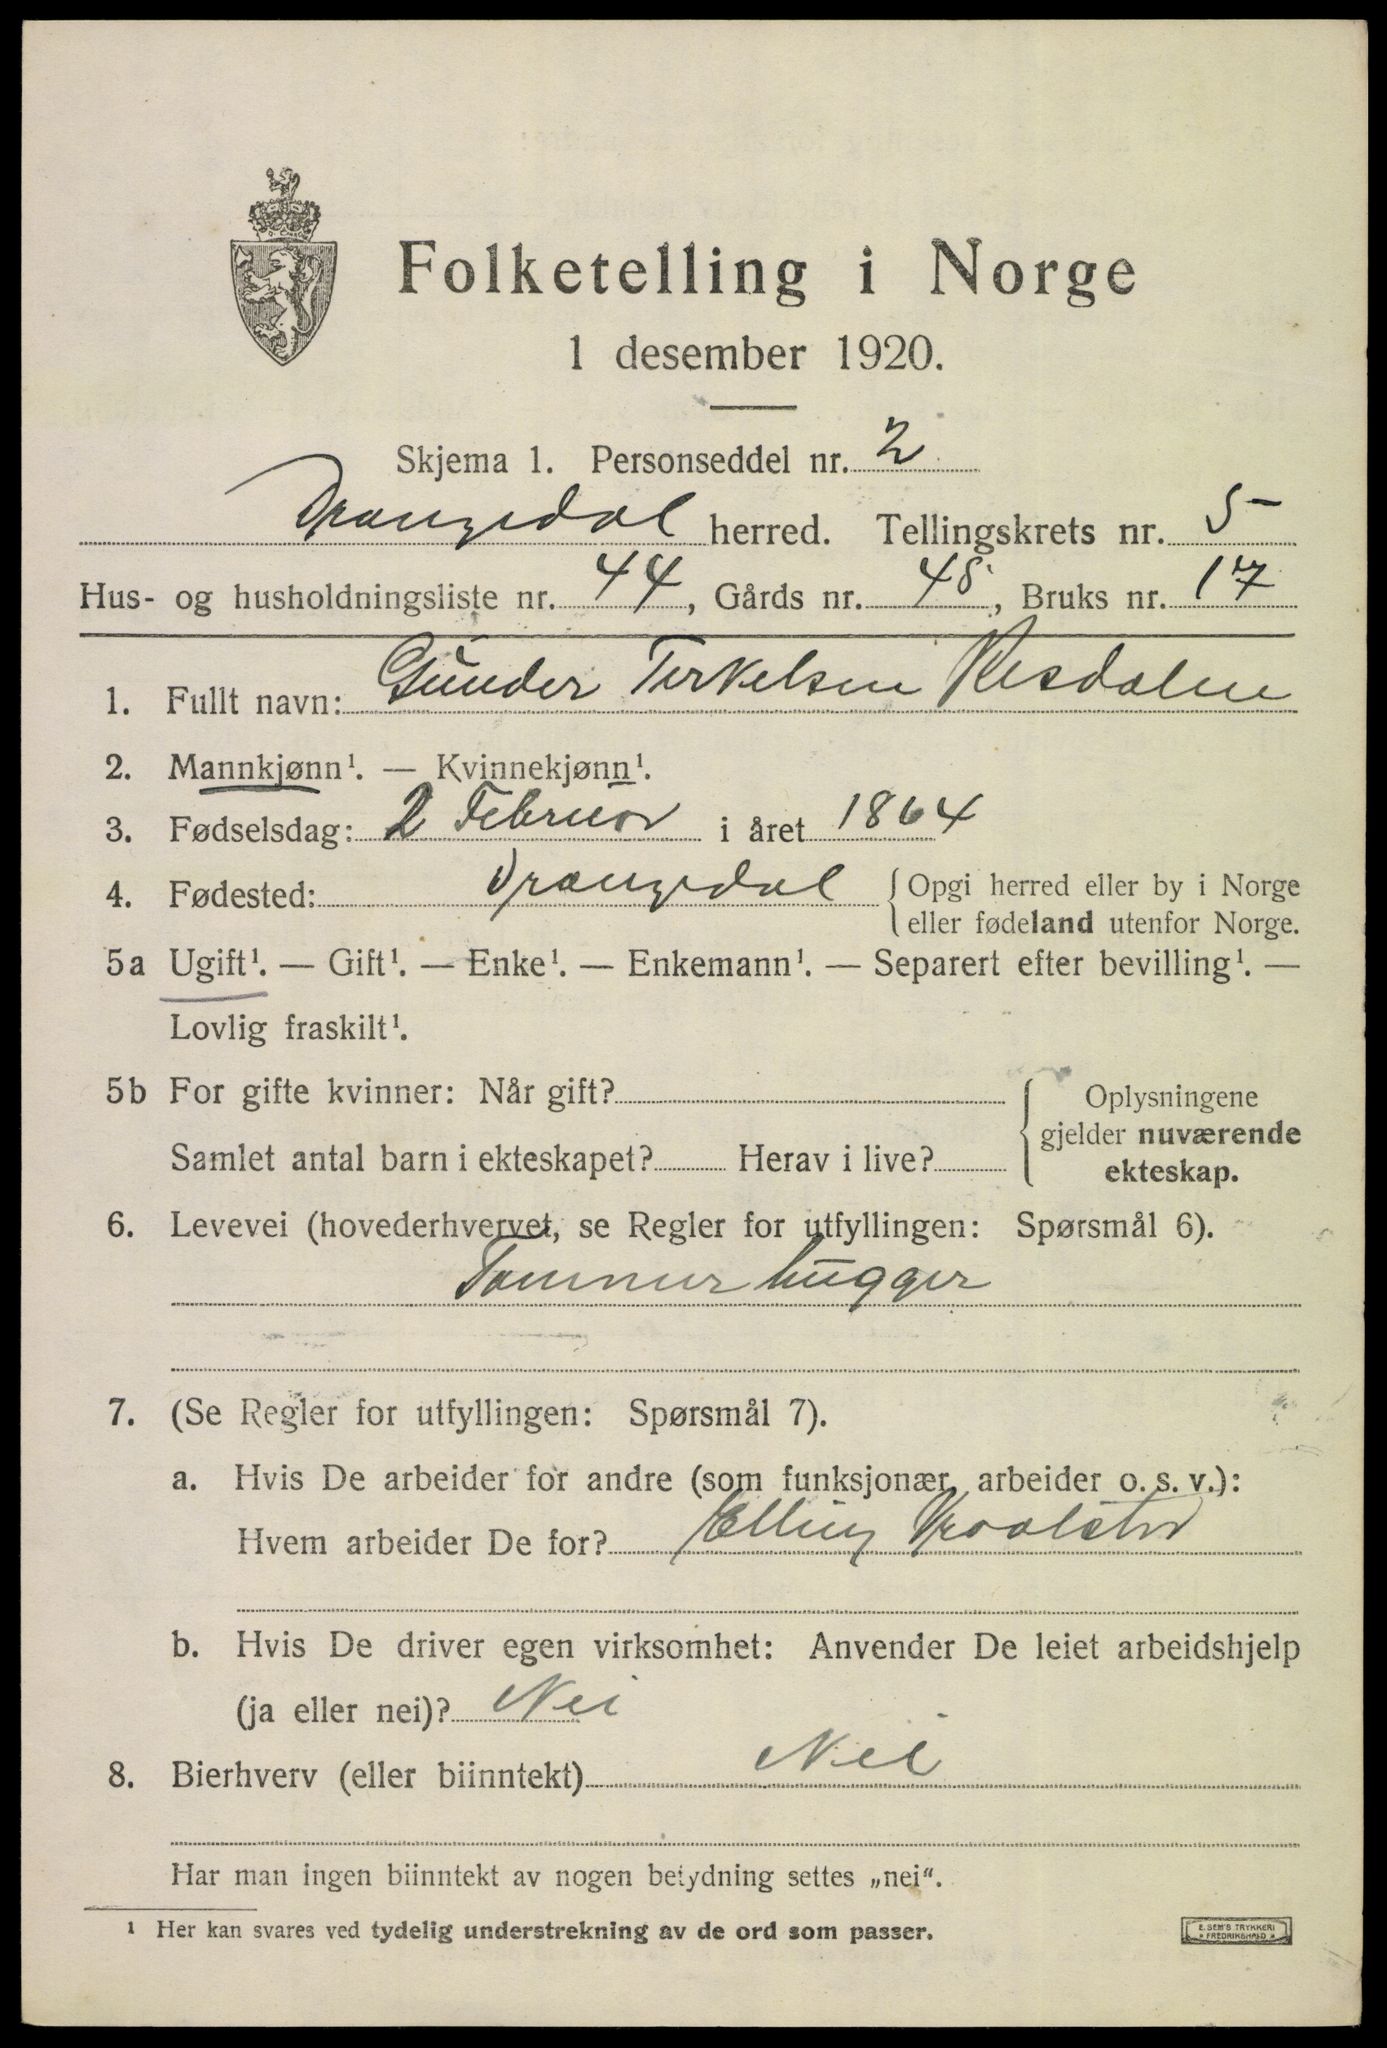 Folketelling i Norge
1 desember 1920.
Skjema 1. Personseddel nr. 2
Drangedal herred. Tellingskrets nr. 5
Hus- og husholdningsliste nr. 44, Gårds nr. 48, Bruks nr. 17
1. Fullt navn: Gunder Terkelsen
2. Mannkjønn¹. — Kvinnekjønn¹.
3. Fødselsdag: 2 Februar i året 1864
4. Fødested: Drangedal { Opgi herred eller by i Norge
eller fødeland utenfor Norge.
5a Ugift¹. — Gift¹. — Enke¹. — Enkemann¹. — Separert efter bevilling¹. —
Lovlig fraskilt¹.
5b For gifte kvinner: Når gift? { Oplysningene
gjelder nuværende
Samlet antal barn i ekteskapet? Herav i live?
ekteskap.
6. Levevei (hovederhvervet, se Regler for utfyllingen: Spørsmål 6).
Tømmerhugger
7. (Se Regler for utfyllingen: Spørsmål 7).
a. Hvis De arbeider for andre (som funksjonær, arbeider o. s. v.):
Hvem arbeider De for? Elling
b. Hvis De driver egen virksomhet: Anvender De leiet arbeidshjelp
(ja eller nei)? Nei
8. Bierhverv (eller biinntekt) Nei
Har man ingen biinntekt av nogen betydning settes „nei“.
¹ Her kan svares ved tydelig understrekning av de ord som passer.
E. SEM'S TRYKKERI
FREDRIKSHALD